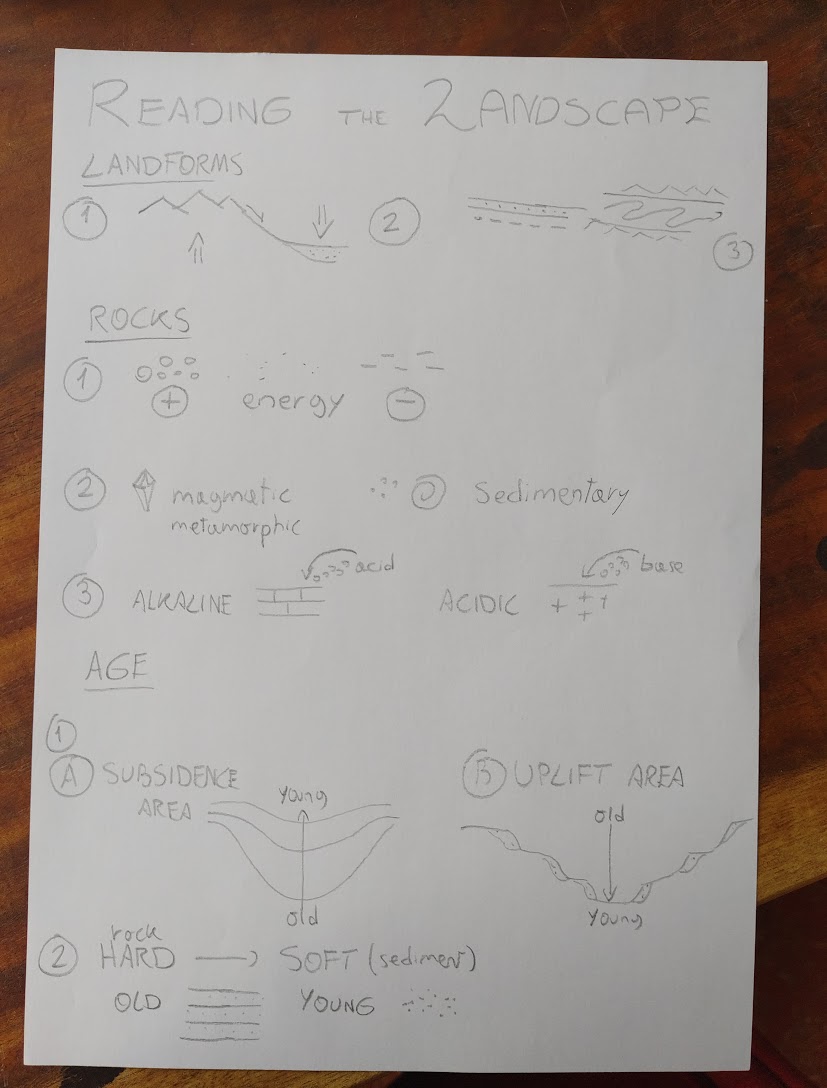 READING THE LANDSCAPE
LANDFORMS
1 2
3
ROCKS
1
+ energy −
2 magmatic Sedimentary
metamorphic
acid base
3 ALKALINE ACIDIC
AGE
1
A SUBSIDENCE B UPLIFT AREA
AREA
young old
old young
rock
2 HARD → SOFT (sediment)
OLD YOUNG